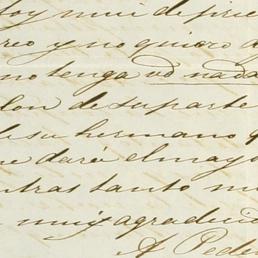 muy de
reo y no quiero
no tenga ud nada
de su parte
su hermano
me dará el mayo
ntras tanto
muy agradeci
A Pede